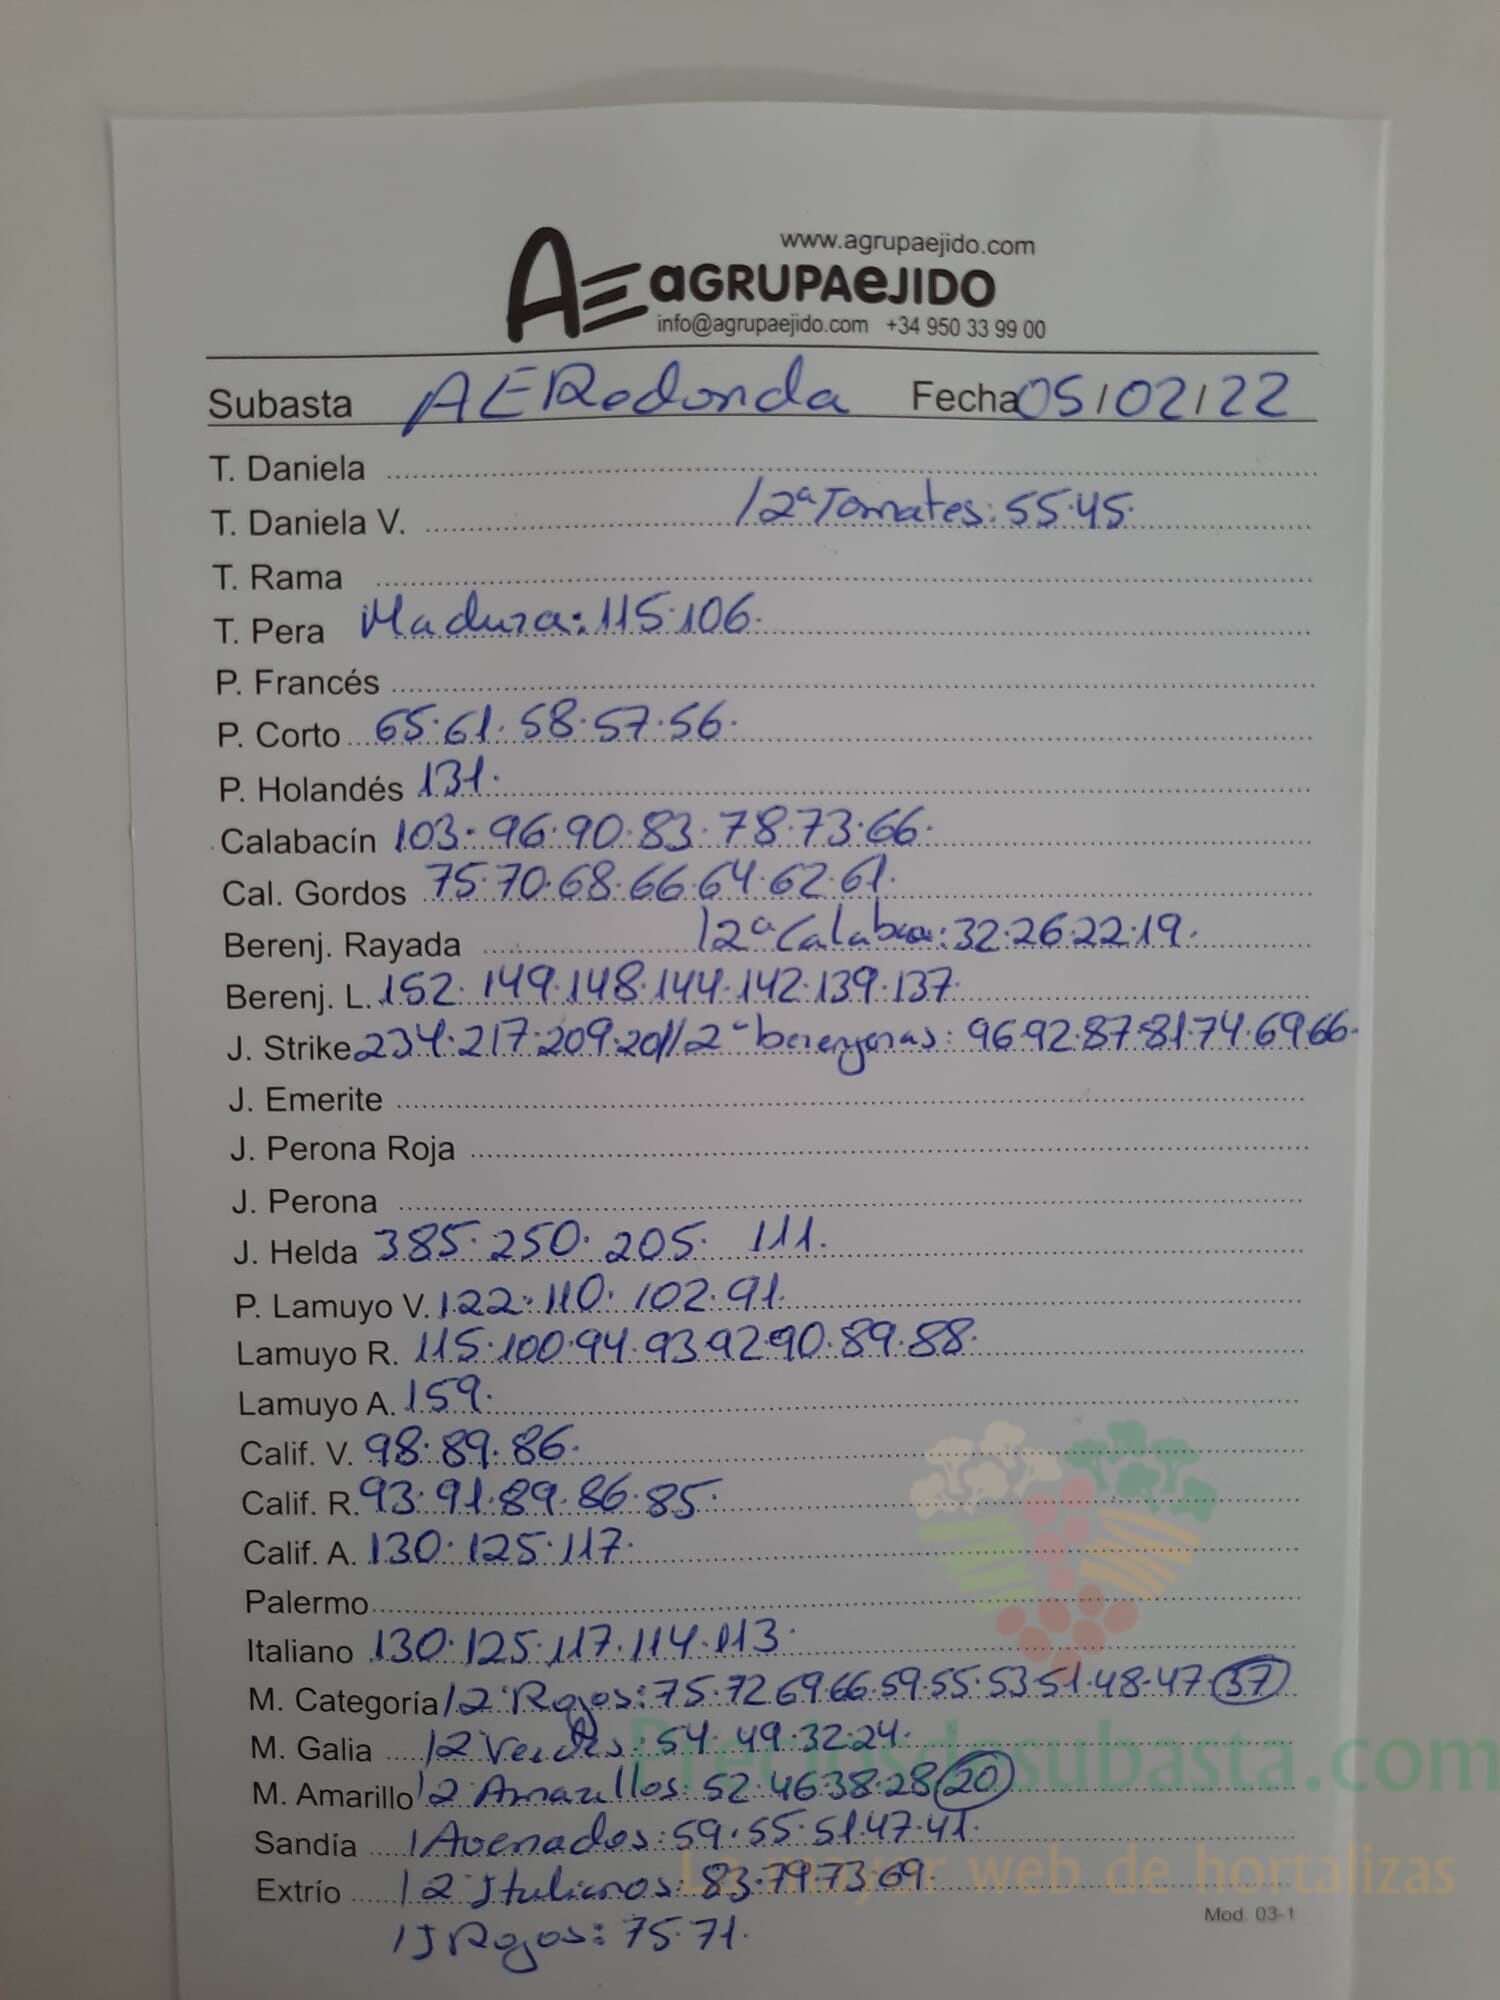 www.agrupaejido.com
AE aGRUPAeJIDO
info@agrupaejido.com +34 950 33 99 00
Subasta AE Redonda Fecha 05/02/22
T. Daniela
/2ª Tomates: 55.45.
T. Daniela V.
T. Rama
T. Pera Madura: 115.106.
P. Francés
P. Corto 65.61.58.57.56.
P. Holandés 131.
Calabacín 103.96.90.83.78.73.66.
Cal. Gordos 75.70.68.66.64.62.61.
Berenj. Rayada /2ª Calabca: 32.26.22.19.
Berenj. L. 152.149.148.144.142.139.137.
J. Strike 234.217.209.201//2ª berenjenas: 96.92.87.81.74.69.66.
J. Emerite
J. Perona Roja
J. Perona
J. Helda 385.250.205. 111.
P. Lamuyo V. 122.110.102.91.
Lamuyo R. 115.100.94.93.92.90.89.88.
Lamuyo A. 159.
Calif. V. 98.89.86.
Calif. R. 93.91.89.86.85.
Calif. A. 130.125.117.
Palermo
Italiano 130.125.117.114.113.
M. Categoría /2 Rojos: 75.72.69.66.59.55.53.51.48.47.37
M. Galia /2 Verdes: 54.49.32.24.
M. Amarillo /2 Amarillos: 52.46.38.28.20
Preciosdesubasta.com
Sandía /Asenados: 59.55.51.47.41.
La mayor web de hortalizas
Extrío /2 Italianos: 83.79.73.69.
Mod. 03-1
/J Rojos: 75.71.